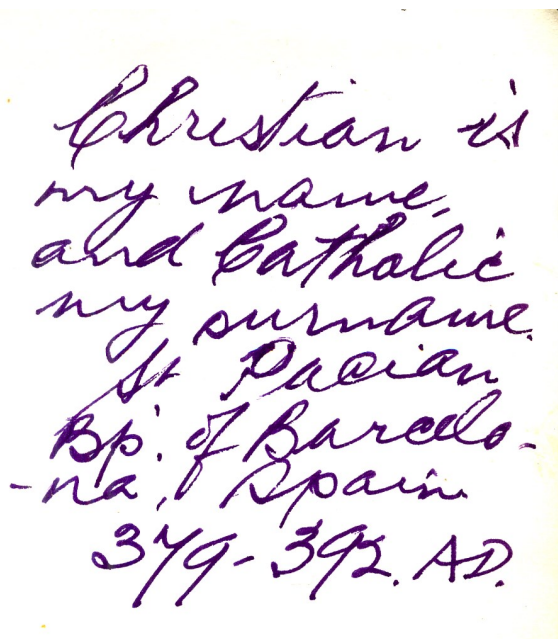 Christian is
my name,
and Catholic
my surname.
St Pacian
Bp. of Barcelo-
-na, Spain
379-392. AD.